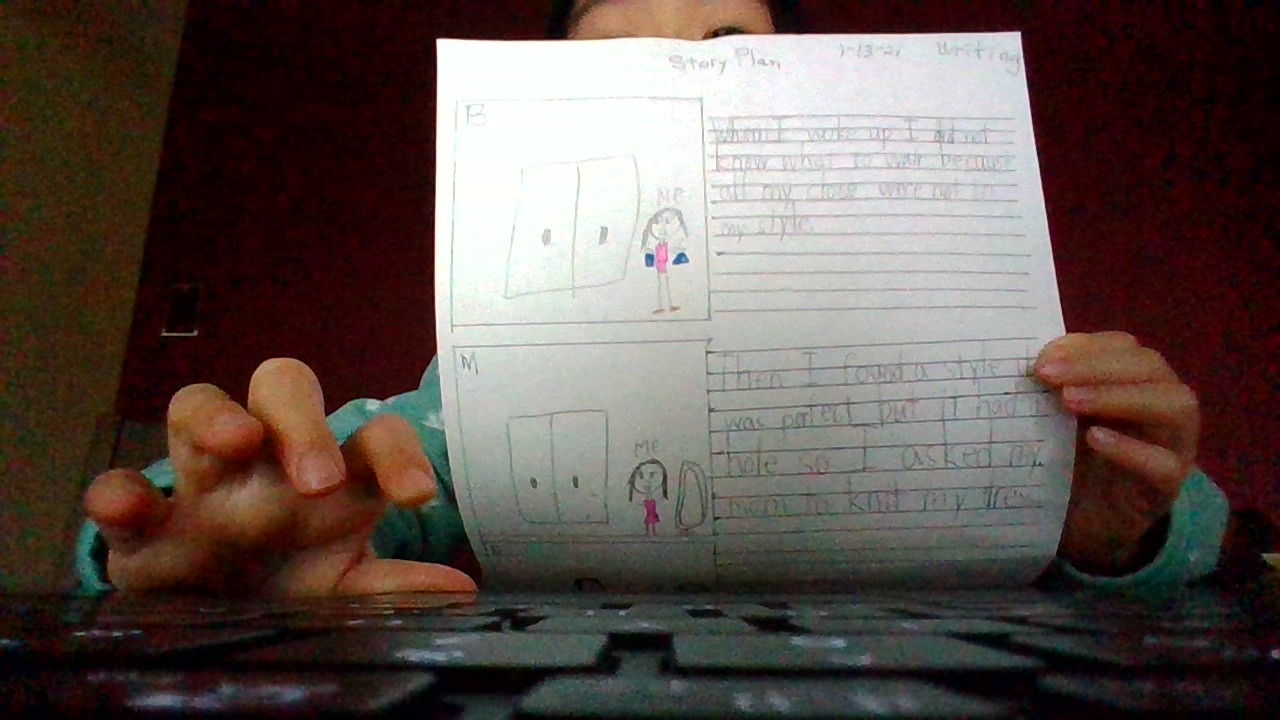 Story Plan 1-13-21 Writing
B
ME
When I woke up I did not
know what to wair because
all my close were not in
my style.
M
ME
Then I found a style
was perfect but it had
hole so I asked my
mom to knit my dres
E